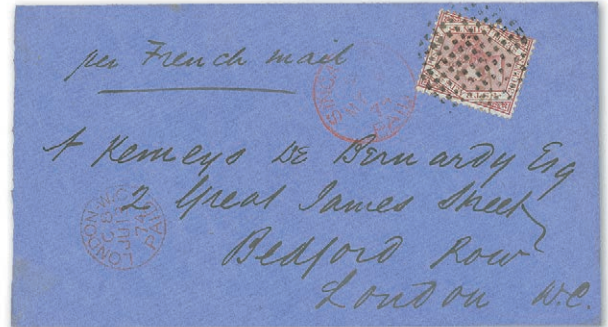 per French mail
A Kemeys De Bernardy Esq
2 Great James Street
Bedford Row
London W.C.
LONDON-W.C
PAID